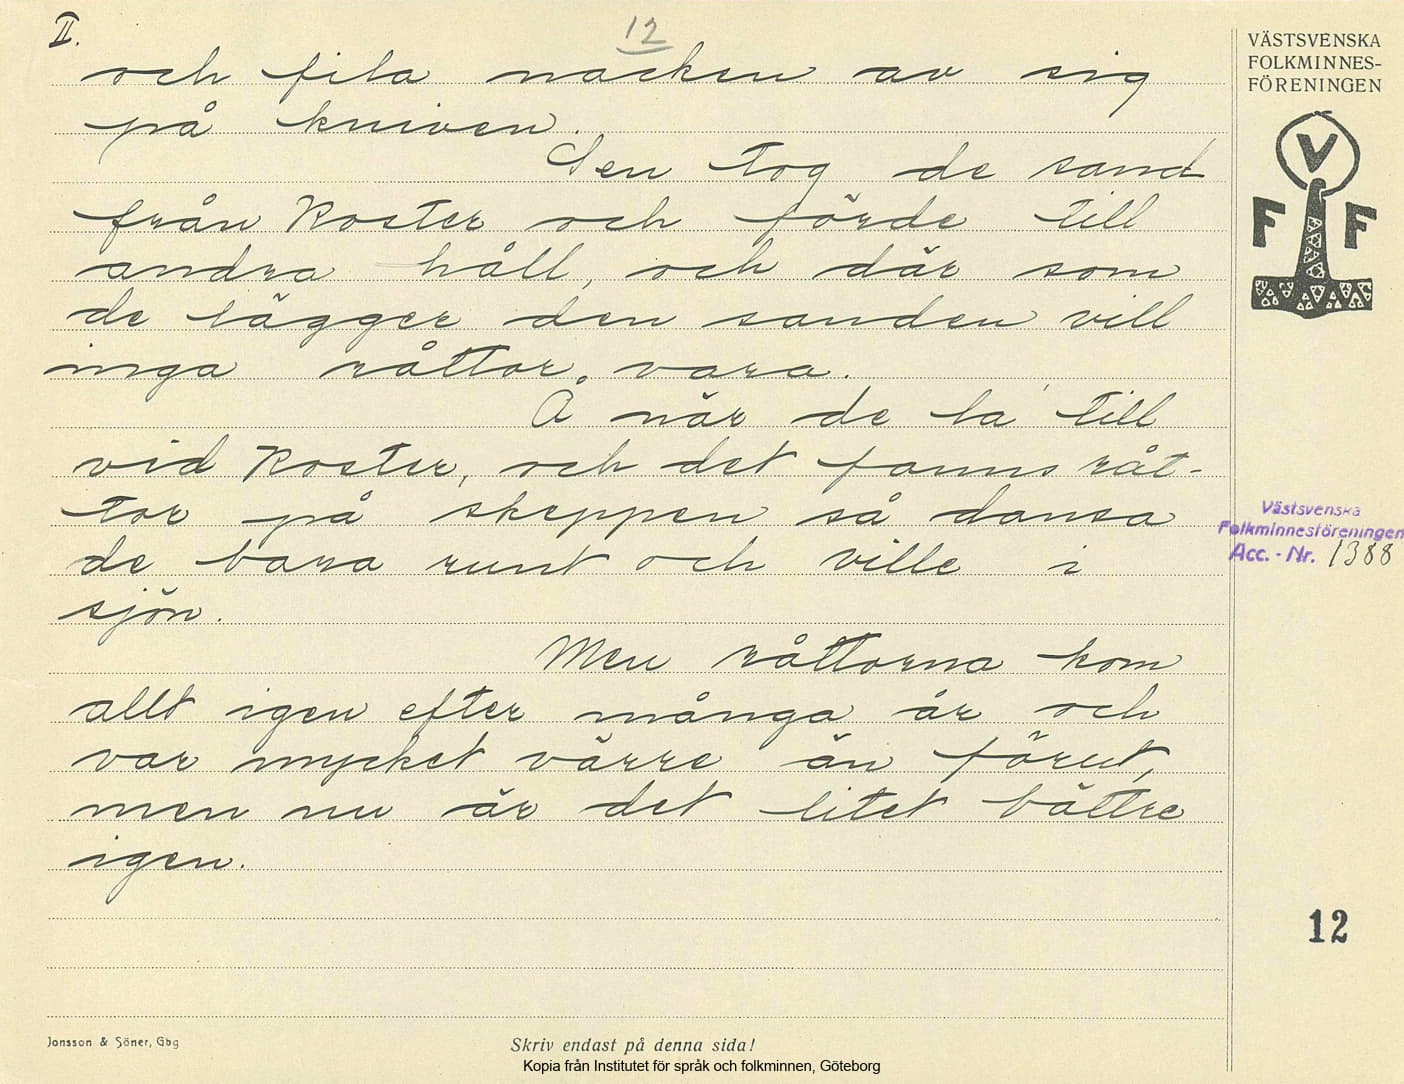 II.
12
och fila nacken av sig
på kniven.
Sen tog de sand
från Koster och förde till
andra håll, och där som
de lägger den sanden vill
inga råttor vara.
Å när de la' till
vid Koster, och det fanns råt-
tor på skeppen så dansa
de bara runt och ville i
sjön.
Men råttorna kom
allt igen efter många år och
var mycket värre än förut,
men nu är det litet bättre
igen.
VÄSTSVENSKA
FOLKMINNES-
FÖRENINGEN
V
F F
Västsvenska
Folkminnesföreningen
Acc. - Nr. 1388
12
Jonsson & Söner, Gbg
Skriv endast på denna sida!
Kopia från Institutet för språk och folkminnen, Göteborg